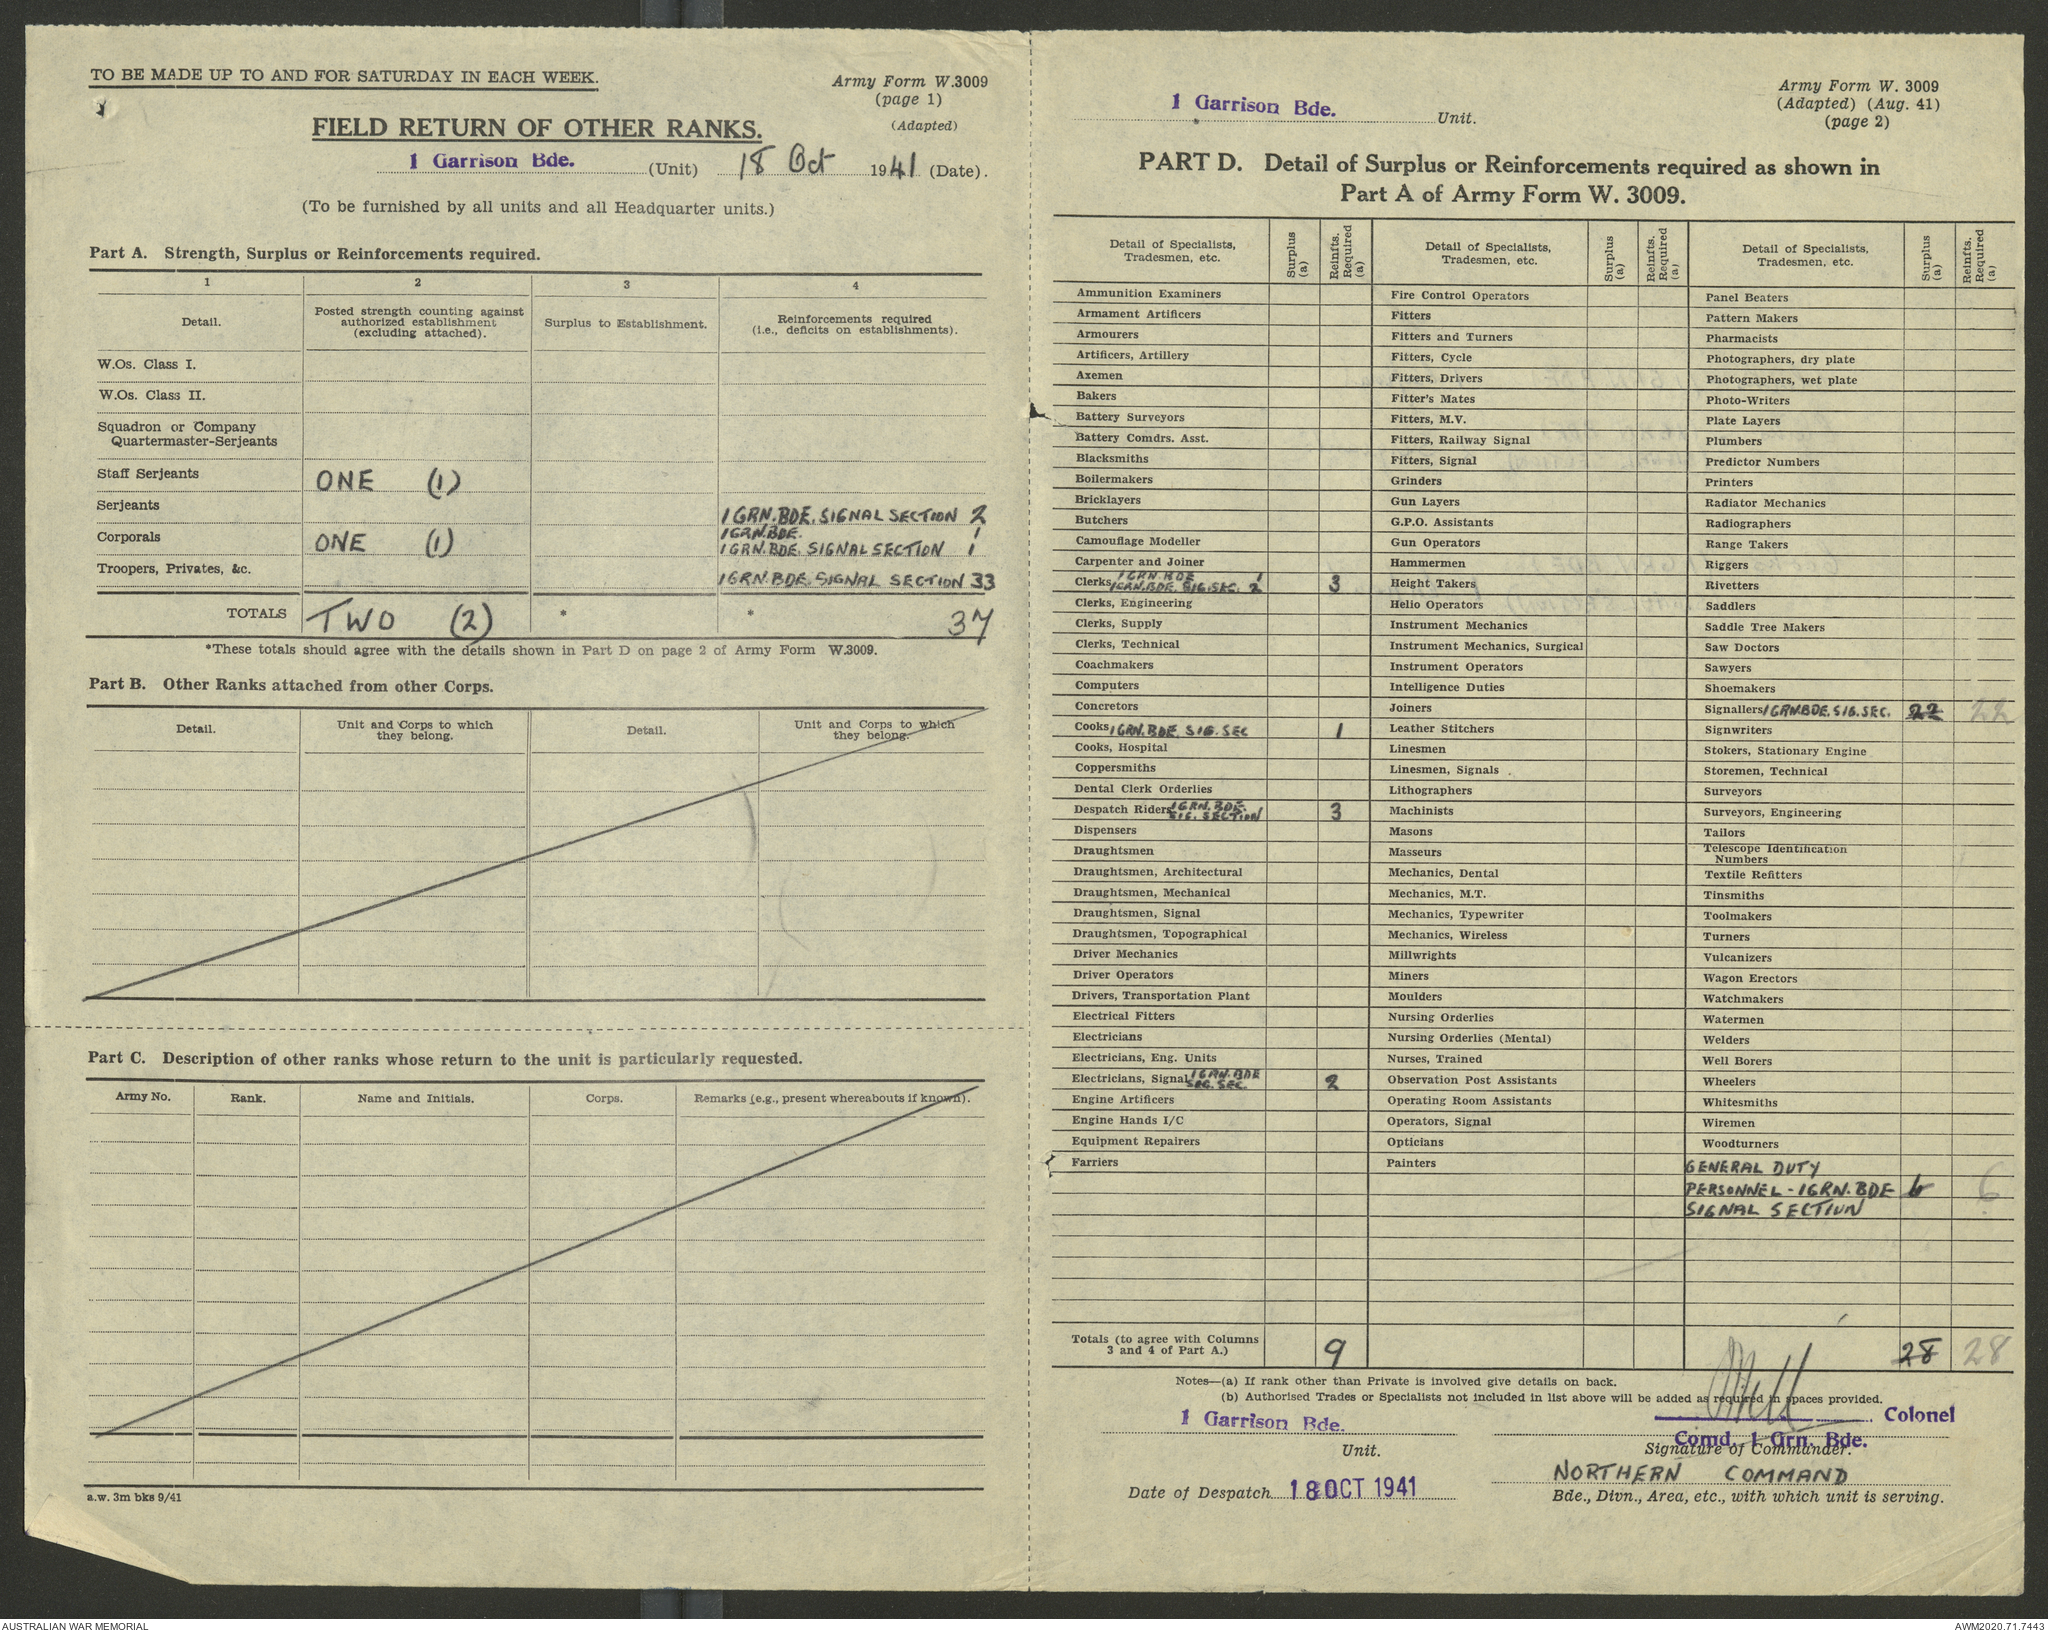 TO BE MADE UP TO AND FOR SATURDAY IN EACH WEEK.
Army Form W.3009
(page 1)
(Adapted)
FIELD RETURN OF OTHER RANKS.
1 Garrison Bde. (Unit) 18 Oct 1941 (Date).
(To be furnished by all units and all Headquarter units.)
Part A. Strength, Surplus or Reinforcements required.
1 2 3 4
Detail.
Posted strength counting against
authorized establishment
(excluding attached).
Surplus to Establishment.
Reinforcements required
(i.e., deficits on establishments).
W.Os. Class I.
W.Os. Class II.
Squadron or Company
Quartermaster-Serjeants
Staff Serjeants ONE (1)
Serjeants 1 GRN. BDE. SIGNAL SECTION 2
1 GRN. BDE. 1
Corporals ONE (1) 1 GRN. BDE. SIGNAL SECTION 1
Troopers, Privates, &c. 1 GRN. BDE. SIGNAL SECTION 33
TOTALS TWO (2) * * 37
*These totals should agree with the details shown in Part D on page 2 of Army Form W.3009.
Part B. Other Ranks attached from other Corps.
Detail.
Unit and Corps to which
they belong.
Detail.
Unit and Corps to which
they belong.
Part C. Description of other ranks whose return to the unit is particularly requested.
Army No. Rank. Name and Initials. Corps. Remarks (e.g., present whereabouts if known).
a.w. 3m bks 9/41
1 Garrison Bde. Unit.
Army Form W. 3009
(Adapted) (Aug. 41)
(page 2)
PART D. Detail of Surplus or Reinforcements required as shown in
Part A of Army Form W. 3009.
Detail of Specialists,
Tradesmen, etc.
Surplus
(a)
Reinfts.
Required
(a)
Ammunition Examiners
Armament Artificers
Armourers
Artificers, Artillery
Axemen
Bakers
Battery Surveyors
Battery Comdrs. Asst.
Blacksmiths
Boilermakers
Bricklayers
Butchers
Camouflage Modeller
Carpenter and Joiner
Clerks 1 GRN. BDE 1
1 GRN. BDE. SIG. SEC. 2 3
Clerks, Engineering
Clerks, Supply
Clerks, Technical
Coachmakers
Computers
Concretors
Cooks 1 GRN. BDE. SIG. SEC 1
Cooks, Hospital
Coppersmiths
Dental Clerk Orderlies
Despatch Riders 1 GRN. BDE.
SIG. SECTION 3
Dispensers
Draughtsmen
Draughtsmen, Architectural
Draughtsmen, Mechanical
Draughtsmen, Signal
Draughtsmen, Topographical
Driver Mechanics
Driver Operators
Drivers, Transportation Plant
Electrical Fitters
Electricians
Electricians, Eng. Units
Electricians, Signal 1 GRN. BDE
SIG. SEC. 2
Engine Artificers
Engine Hands I/C
Equipment Repairers
Farriers
Totals (to agree with Columns
3 and 4 of Part A.) 9
Detail of Specialists,
Tradesmen, etc.
Surplus
(a)
Reinfts.
Required
(a)
Fire Control Operators
Fitters
Fitters and Turners
Fitters, Cycle
Fitters, Drivers
Fitter's Mates
Fitters, M.V.
Fitters, Railway Signal
Fitters, Signal
Grinders
Gun Layers
G.P.O. Assistants
Gun Operators
Hammermen
Height Takers
Helio Operators
Instrument Mechanics
Instrument Mechanics, Surgical
Instrument Operators
Intelligence Duties
Joiners
Leather Stitchers
Linesmen
Linesmen, Signals
Lithographers
Machinists
Masons
Masseurs
Mechanics, Dental
Mechanics, M.T.
Mechanics, Typewriter
Mechanics, Wireless
Millwrights
Miners
Moulders
Nursing Orderlies
Nursing Orderlies (Mental)
Nurses, Trained
Observation Post Assistants
Operating Room Assistants
Operators, Signal
Opticians
Painters
Detail of Specialists,
Tradesmen, etc.
Surplus
(a)
Reinfts.
Required
(a)
Panel Beaters
Pattern Makers
Pharmacists
Photographers, dry plate
Photographers, wet plate
Photo-Writers
Plate Layers
Plumbers
Predictor Numbers
Printers
Radiator Mechanics
Radiographers
Range Takers
Riggers
Rivetters
Saddlers
Saddle Tree Makers
Saw Doctors
Sawyers
Shoemakers
Signallers 1 GRN. BDE. SIG. SEC. 22 22
Signwriters
Stokers, Stationary Engine
Storemen, Technical
Surveyors
Surveyors, Engineering
Tailors
Telescope Identification
Numbers
Textile Refitters
Tinsmiths
Toolmakers
Turners
Vulcanizers
Wagon Erectors
Watchmakers
Watermen
Welders
Well Borers
Wheelers
Whitesmiths
Wiremen
Woodturners
GENERAL DUTY
PERSONNEL - 1 GRN. BDE 6 6
SIGNAL SECTION
28 28
Notes—(a) If rank other than Private is involved give details on back.
(b) Authorised Trades or Specialists not included in list above will be added as required in spaces provided.
1 Garrison Bde.
Unit.
Colonel
Comd. 1 Grn. Bde.
Signature of Commander.
Date of Despatch 18 OCT 1941
NORTHERN COMMAND
Bde., Divn., Area, etc., with which unit is serving.
AUSTRALIAN WAR MEMORIAL
AWM2020.71.7443